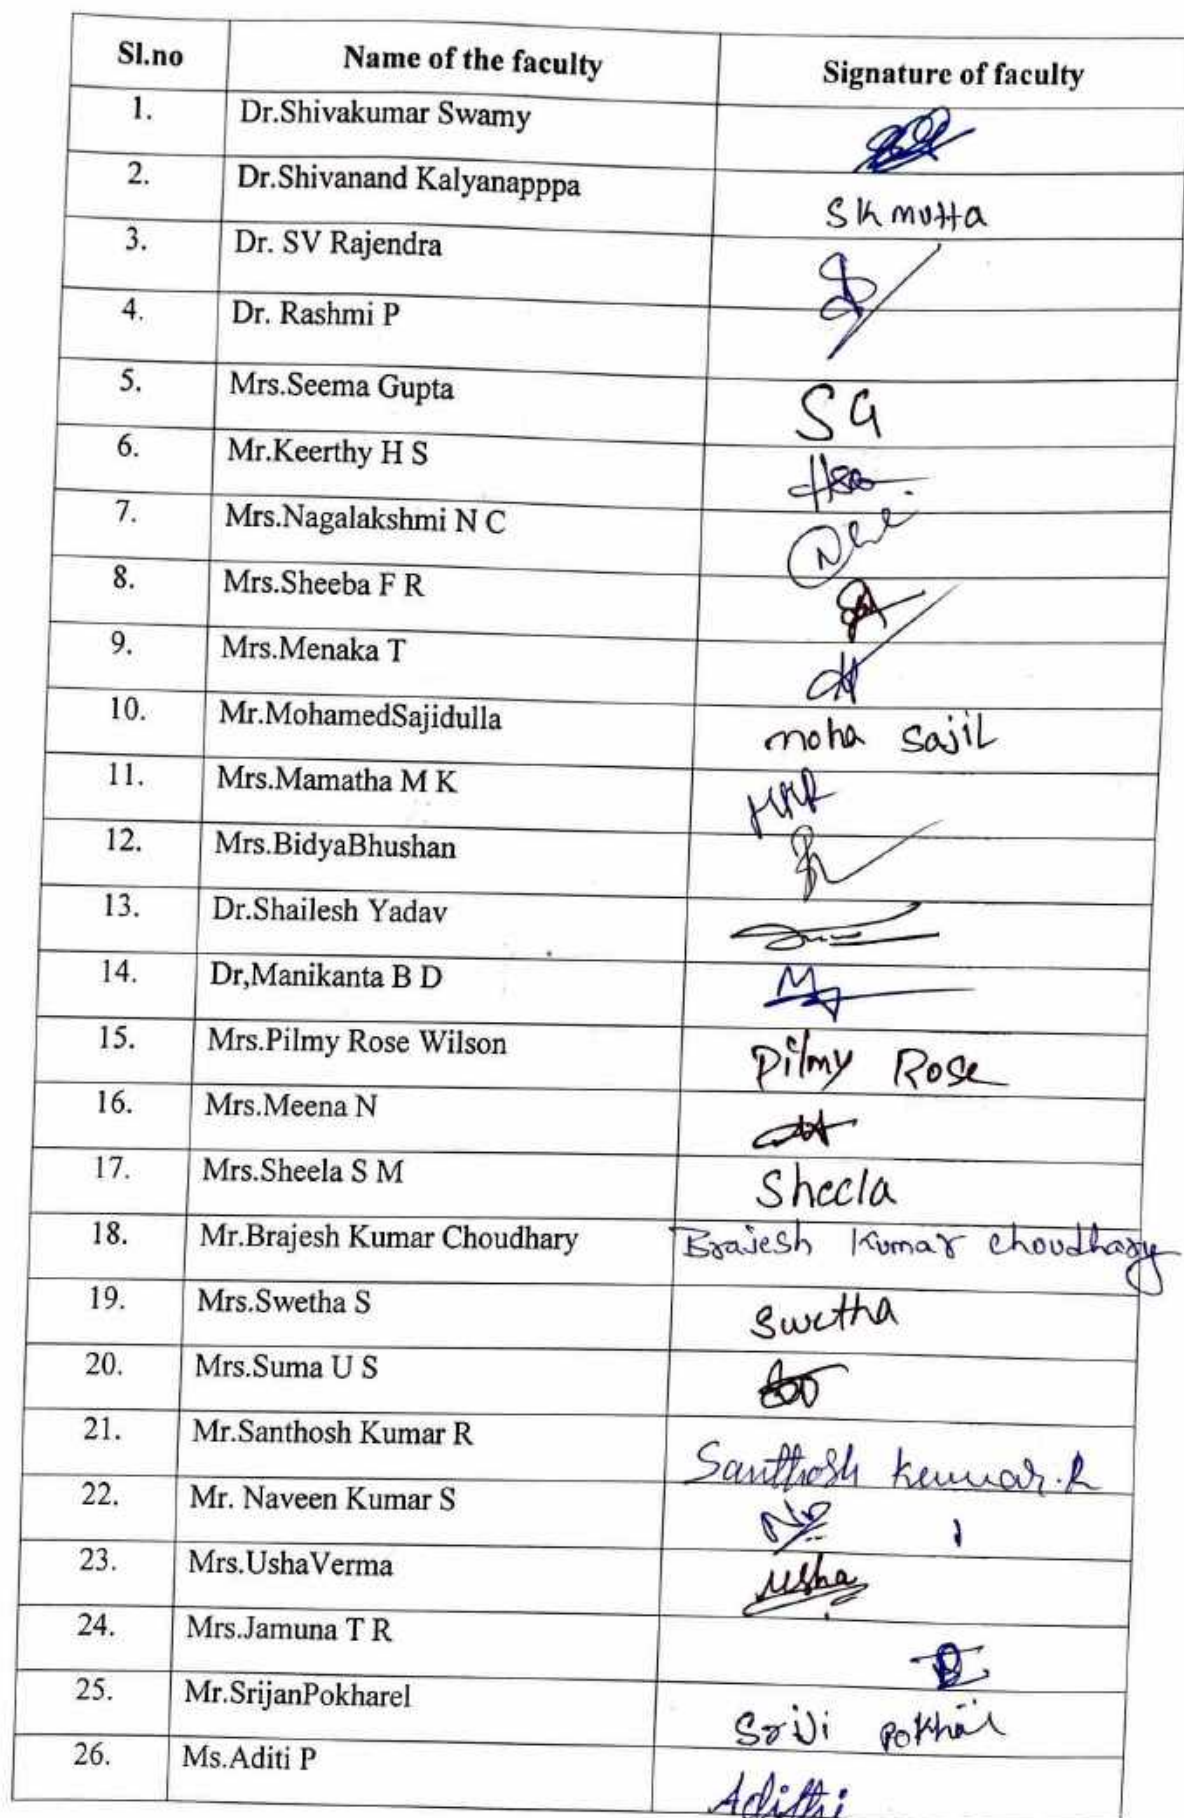 Sl.no Name of the faculty Signature of faculty
1. Dr.Shivakumar Swamy
2. Dr.Shivanand Kalyanapppa SK mutta
3. Dr. SV Rajendra
4. Dr. Rashmi P
5. Mrs.Seema Gupta SG
6. Mr.Keerthy H S
7. Mrs.Nagalakshmi N C
8. Mrs.Sheeba F R
9. Mrs.Menaka T
10. Mr.MohamedSajidulla moha sajil
11. Mrs.Mamatha M K
12. Mrs.BidyaBhushan
13. Dr.Shailesh Yadav
14. Dr,Manikanta B D
15. Mrs.Pilmy Rose Wilson Pilmy Rose
16. Mrs.Meena N
17. Mrs.Sheela S M Sheela
18. Mr.Brajesh Kumar Choudhary Brajesh Kumar choudhary
19. Mrs.Swetha S Swetha
20. Mrs.Suma U S
21. Mr.Santhosh Kumar R Santhosh Kumar.R
22. Mr. Naveen Kumar S
23. Mrs.UshaVerma Usha
24. Mrs.Jamuna T R
25. Mr.SrijanPokharel Sriji
26. Ms.Aditi P Adithi